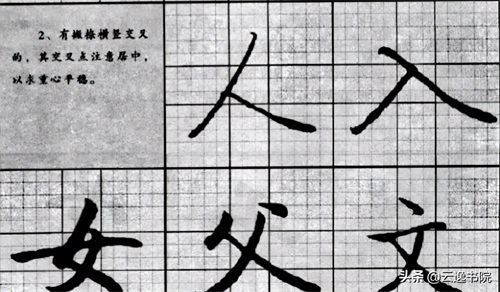 2、有撇捺横竖交叉
的，其交叉点注意居中，
以求重心平稳。
人 入
女 父 文
头条 @云逸书院